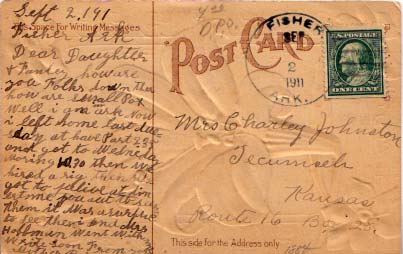 Sept 2, 191
This Space for Writing Messages
Fisher Ark
Dear Daughter
& Family how are
you Folks down there
how are small Pox
Well i am ark Now
i left home Last tue
sday at have Past 2
and got to Wednesday
moring 10.30 then we
hired a rig then
got to
Them it Was a surprise
to see them and Mrs
Hoffman Went With
Write soon From
POST CARD
FISHER
SEP
2
1911
ARK.
U.S. POSTAGE
ONE CENT
Mrs Charley Johnston
Tecumseh
Kansas
Route 16 Box 25.
This side for the Address only